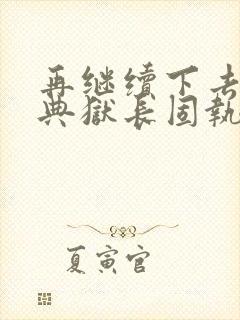 再继续下去
典獄长固執
夏寅官